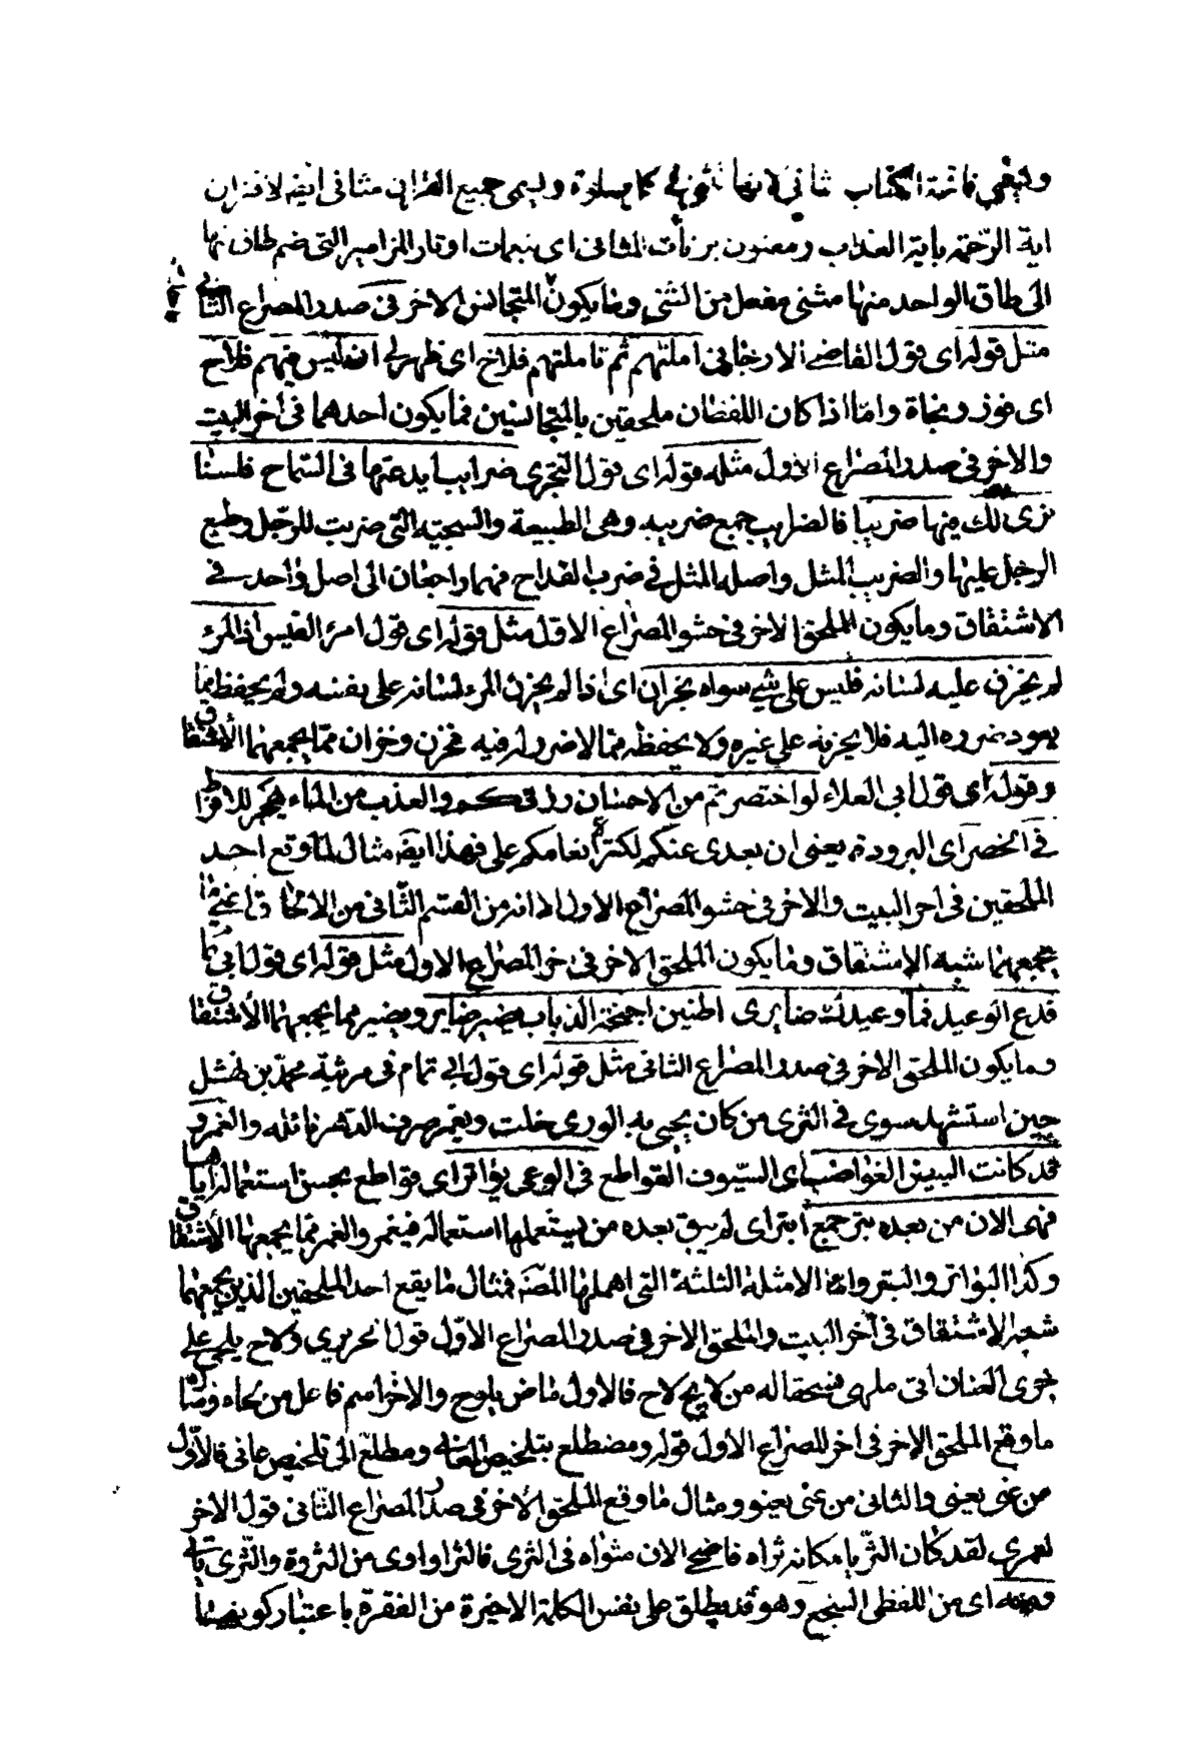 وليسمى فاتحة الكتاب مثاني لانها تثنى في كل صلوة ويسمى جميع القرآن مثاني ايضه لاقتران
اية الرّحمة باية العذاب ومفتون برنات المثانى اى بنغمات اوتار المزامير التى ضم طاق منها
الى طاق الواحد منها مثنى مفعل من الثنى وما يكون المتجانس الاخر فى صدر المصراع الثانى
مثل قوله اى قول القاضى الارجانى املتهم ثم تاملتهم فلاح اى ظهر لى ان ليس فيهم فلاح
اى فوز ونجاة واما اذا كان اللفظان ملحقين بالمتجانسين فما يكون احدهما فى اخر البيت
والاخر فى صدر المصراع الاول مثله قوله اى قول البحترى ضرايب ابدعتها فى السّماح فلسنا
نرى لك فيها ضريبا فالضرايب جمع ضريبه وهى الطبيعة والسجية التى ضربت للرّجل وطبع
الرجل عليها والضريب المثل واصله المثل فى ضرب القداح فهما راجعان الى اصل واحد فى
الاشتقاق وما يكون الملحق الاخر فى حشو المصراع الاوّل مثل قوله اى قول امرء القيس اذا المرء
لم يخزن عليه لسانه فليس على شىء سواه بخزان اى اذا لم يخزن المرء لسانه على نفسه ولم يحفظه مما
يعود ضرره اليه فلا يخزنه على غيره ولا يحفظه مما لا ضرر له فيه فيخزن وخزان ممّا يجمعهما الأشتقاق
وقوله اى قول ابى العلاء لو اختصرتم من الاحسان زرتكم والعذب من الماء يهجر للافراط
فى الخصر اى البرودة يعنى ان بعدى عنكم لكثرة انعامكم على فهذا ايضه مثال لما وقع احد
الملحقين فى اخر البيت والاخر فى حشو المصراع الاول الا انه من القسم الثّانى من الالحاق اعنى ما
يجمعهما شبه الاشتقاق وما يكون الملحق الاخر فى اخر المصراع الاول مثل قوله اى قول ابى تمام
فدع الوعيد فما وعيدك ضايرى اطنين اجنحة الذباب يضير ضاير ويضير مما يجمعهما الأشتقاق
وما يكون الملحق الاخر فى صدر المصراع الثانى مثل قوله اى قول ابى تمام فى مرثية محمّد بن نهشل
حين استشهد سوى فى الثرى من كان يحيى به الورى ويغمر صرف الدّهر نائله والغمر و
قد كانت البيض القواضب اى السّيوف القواطع فى الوغى بواتر اى قواطع بحسن استعماله اياها
فهى الان من بعده بتر جمع ابتر اى لم يبق بعده من يستعملها استعماله فيغمر والغمر ممّا يجمعهما الأشتقاق
وكذا البواتر والبتر واما الامثلة الثلثة التى اهملها المصّنه فمثال ما يقع احد الملحقين الذين يجمعهما
شبه الاشتقاق فى اخر البيت والملحق الاخر فى صدر المصراع الاوّل قول الحريرى ولاح يلحى على
جرى العنان الى ملهى فسحقا له من لايح لاح فالاول ماض يلوح والاخر اسم فاعل من لحاه ومثال
ما وقع الملحق الاخر فى اخر المصراع الأول قوله ومضطلع بتلخيص المعانى ومطلع الى تلخيص عانى فالأوّل
من عنى يعنى والثانى من عنى يعنو ومثال ما وقع الملحق الأخر فى صدر المصراع الثّانى قول الاخر
لعمرى لقد كان الثرّيا مكانه ثراه فاضحى الان مثواه فى الثرى فالثرا واوى من الثروة والثّرى يائى
ومنه اى من اللفظى السّجع وهو قد يطلق على نفس الكلمة الاخيرة من الفقرة باعتبار كونها